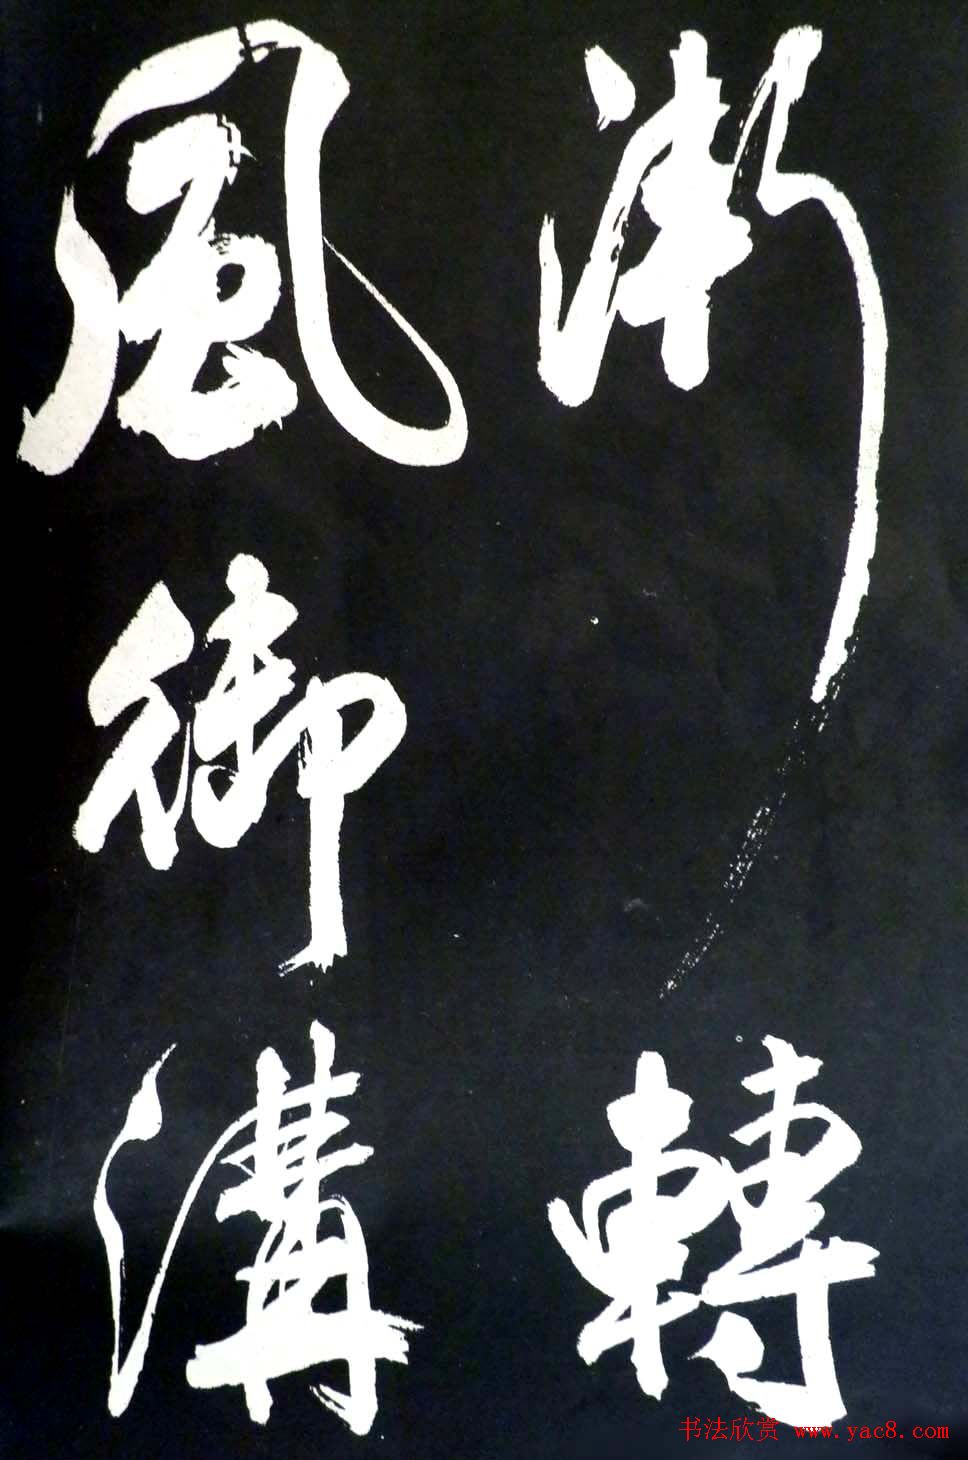 漸轉
風御溝
书法欣赏 www.yac8.com